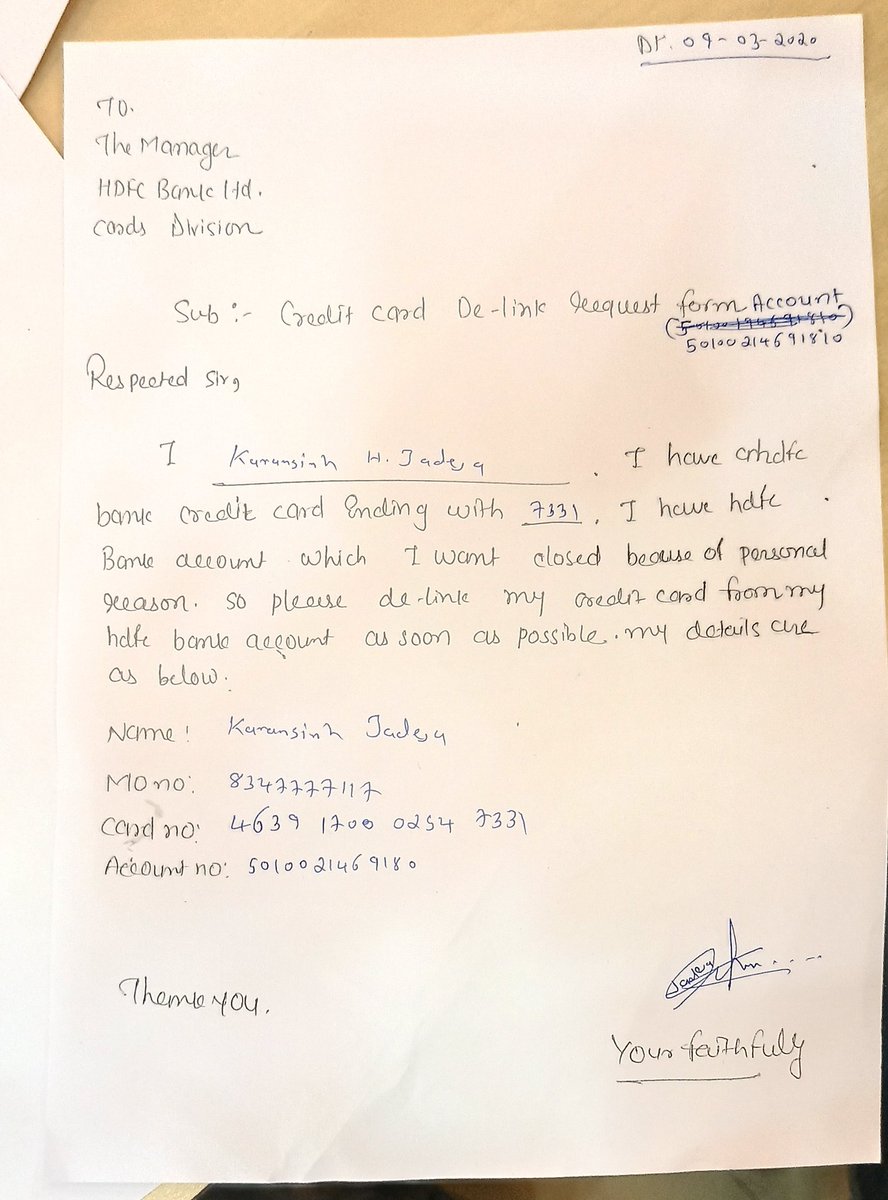 Dt. 09-03-2020
To.
The Manager
HDFC Bank Ltd.
Cards Division
Sub :- Credit card De-link request form Account
(
)
50100214691810
Respected Sir,
I Karansinh H. Jadeja . I have hdfc
bank credit card Ending with 7331 . I have hdfc
Bank account which I want closed becouse of personal
reason. so please de-link my credit card from my
hdfc bank account as soon as possible. my details are
as below.
Name: Karansinh Jadeja
MO no: 8347777117
Card no: 4639 1700 0254 7331
Account no: 5010021469180
Thank YOU.
Your faithfuly